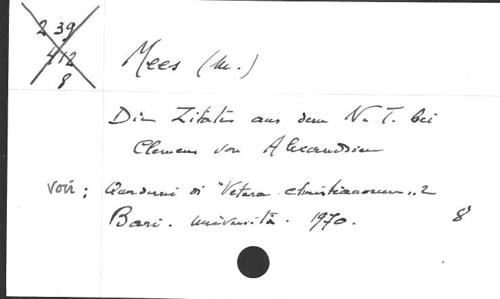 2 39
412
8
Mees (M.)
Die Zitate aus dem N. T. bei
Clemens von Alexandrien
Voir : Quaderni di "Vetera christianorum" 2
Bari. Università. 1970. 8